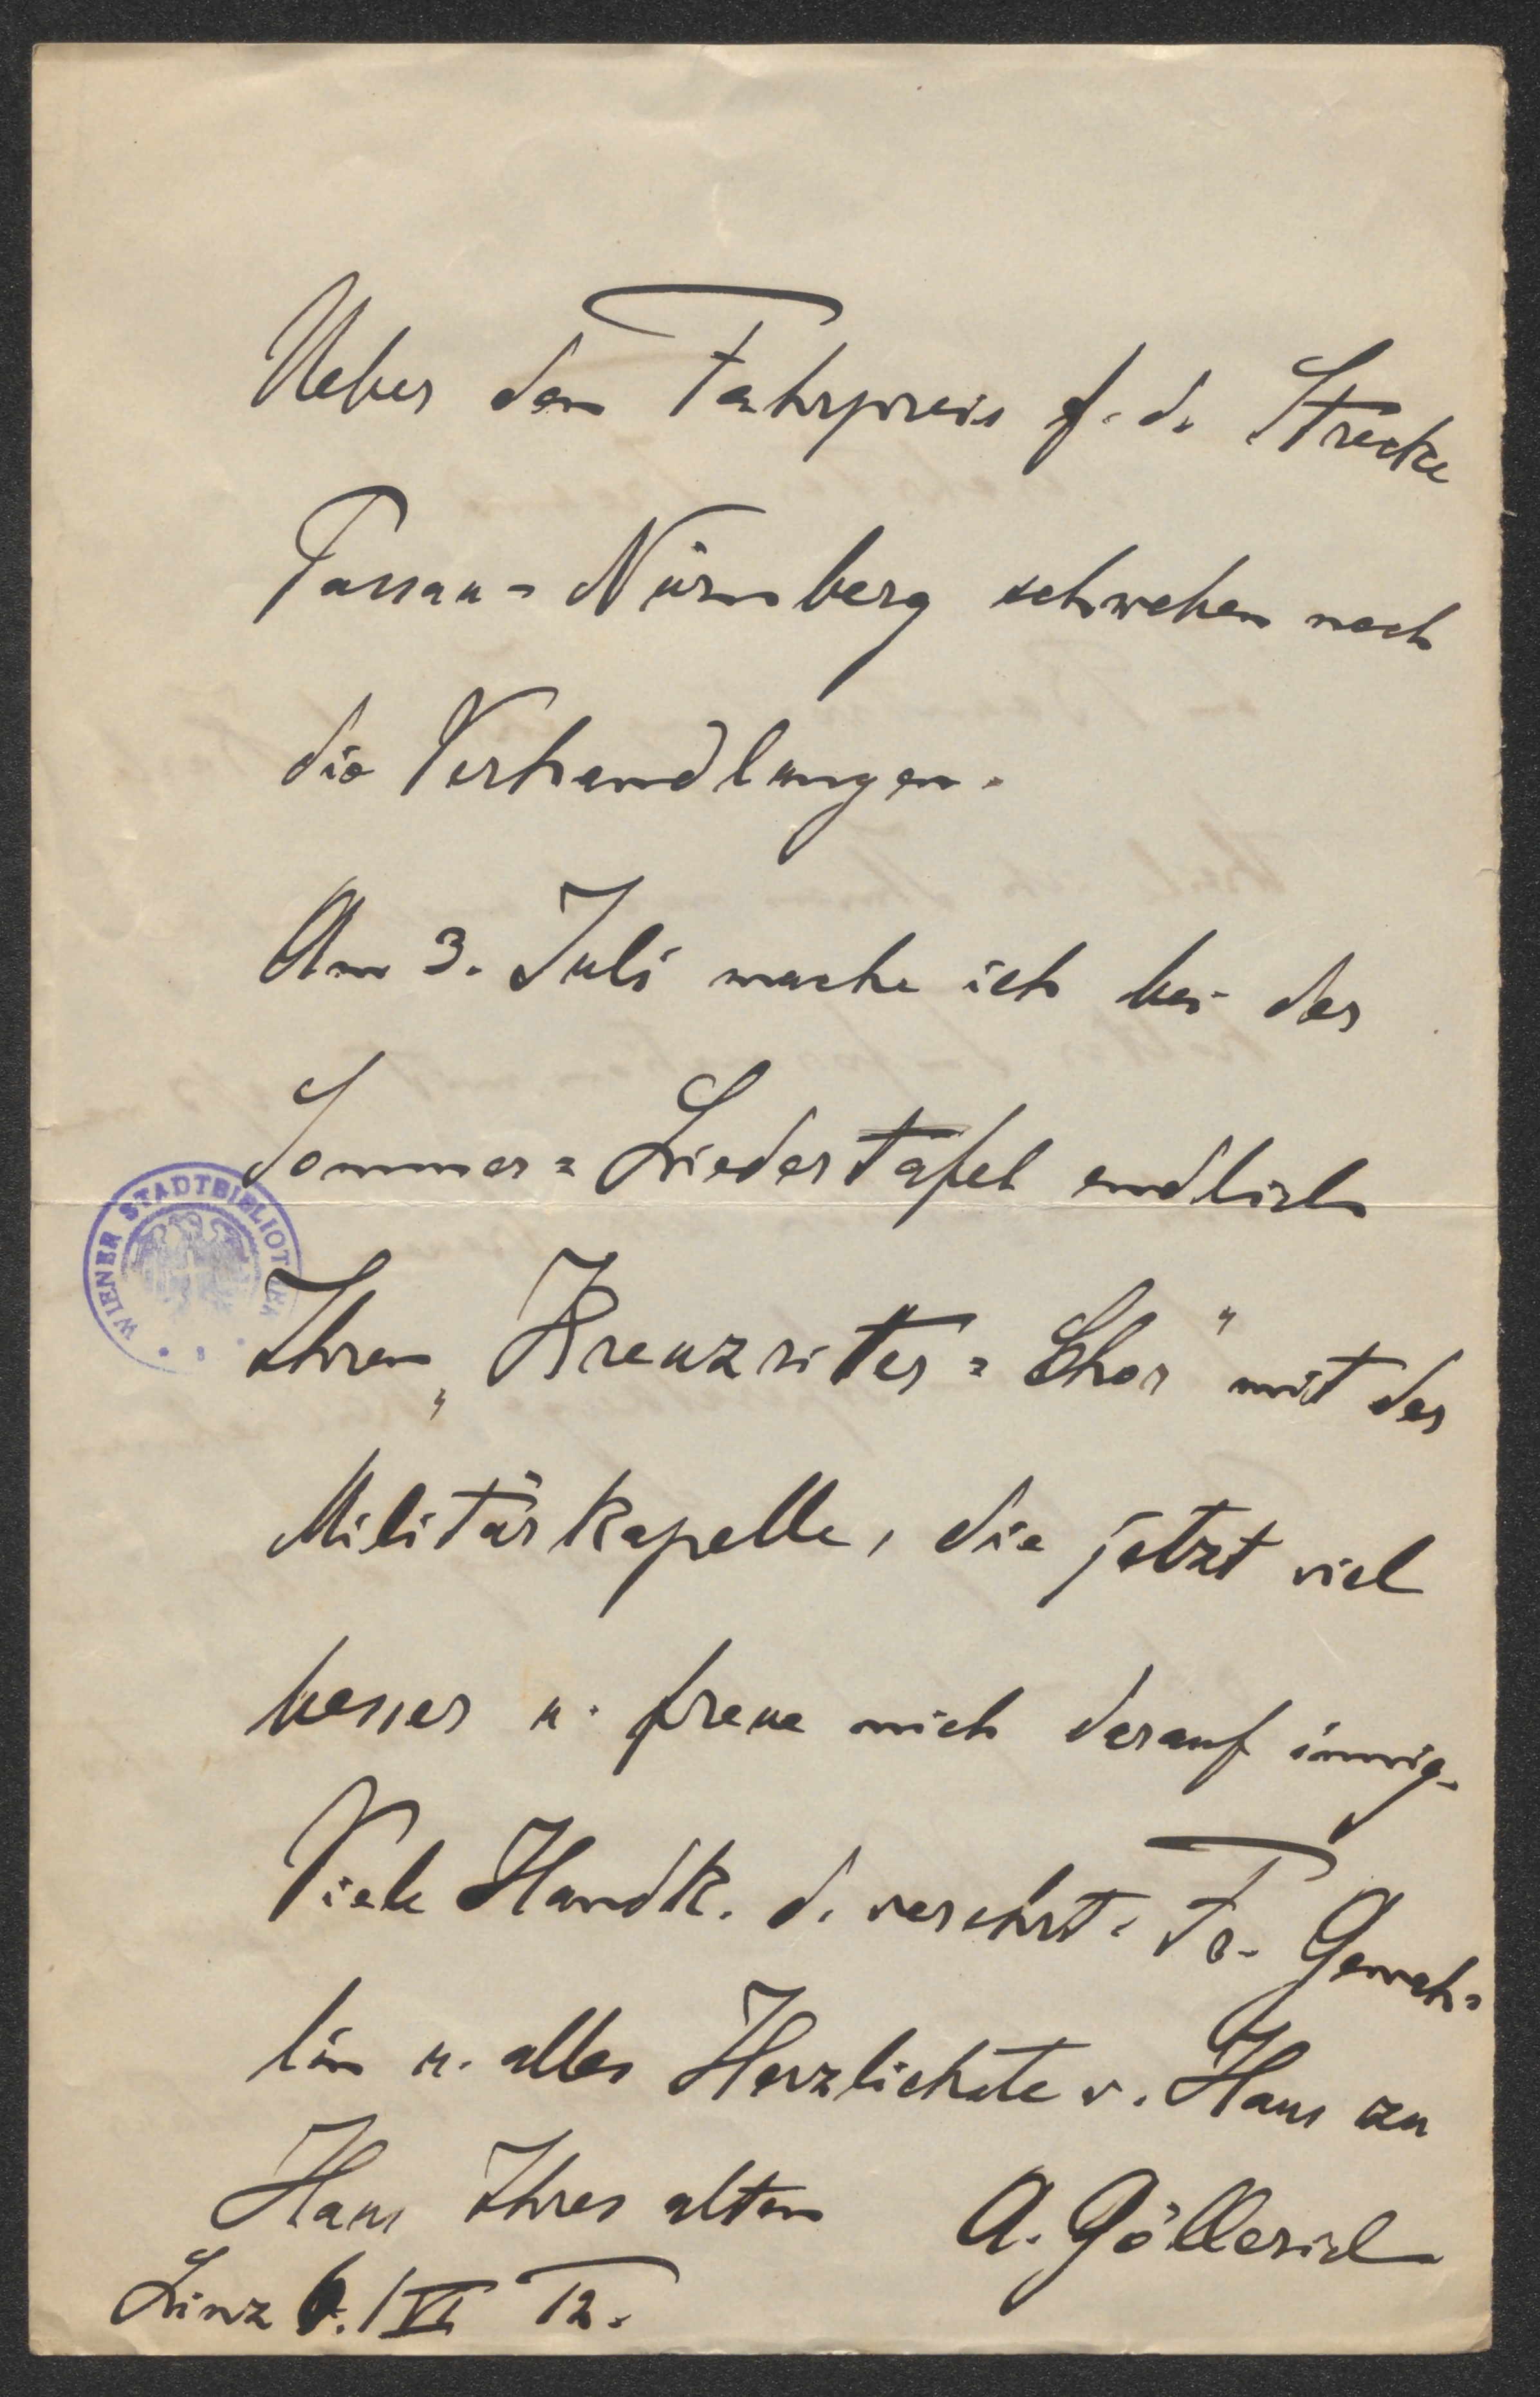 Ueber den Fahrpreis f. d. Strecke
Passau=Nürnberg schweben noch
die Verhandlungen.
Am 3. Juli mache ich bei der
Sommer=Liedertafel endlich
Ihren „Kreuzritter=Chor" mit der
Militärkapelle, die jetzt viel
besser u. freue mich darauf innig.
Viele Handk. d. verehrt. Fr. Gemah=
lin u. alles Herzlichste v. Haus zu
Haus Ihres alten A. Göllerich
Linz 6./VI 12.
WIENER STADTBIBLIOTHEK